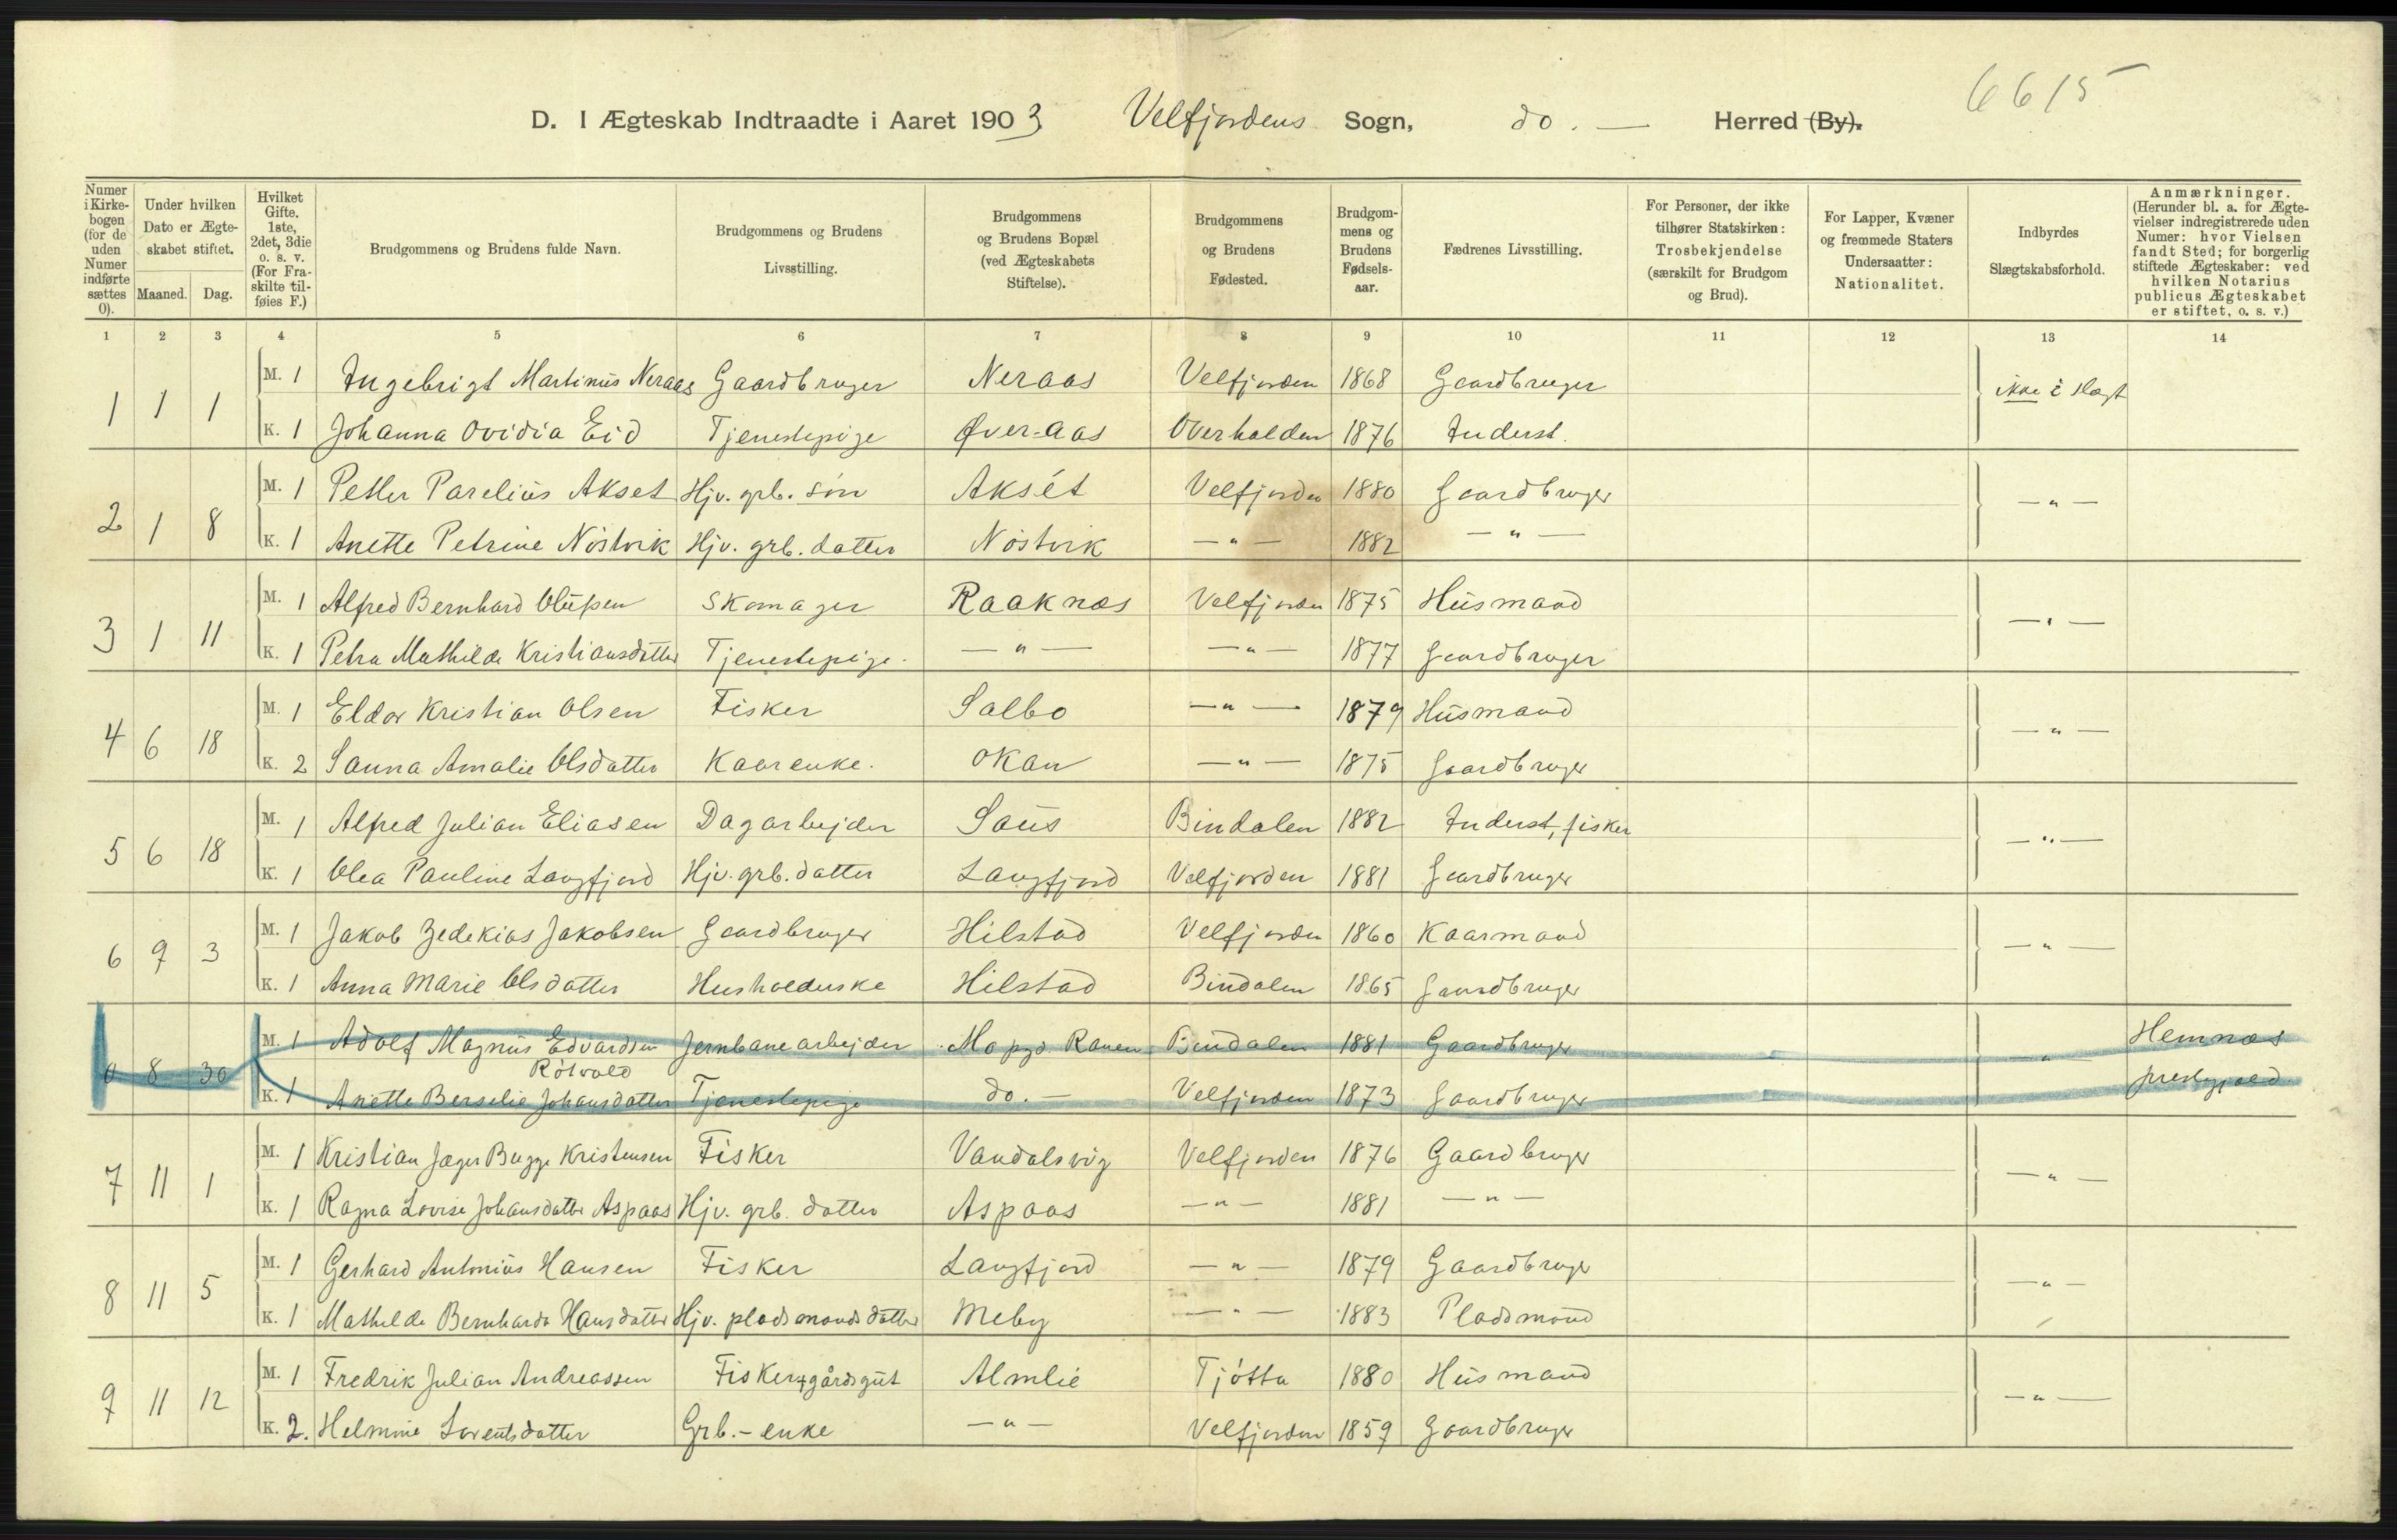 6615
D. I Ægteskab Indtraadte i Aaret 1903 Velfjordens Sogn, do. — Herred (By).
Numer i Kirkebogen (for de uden Numer indførte sættes 0). Under hvilken Dato er Ægteskabet stiftet. Maaned. Dag. Hvilket Gifte. 1ste, 2det, 3die o. s. v. (For Fraskilte tilføies F.) Brudgommens og Brudens fulde Navn. Brudgommens og Brudens Livsstilling. Brudgommens og Brudens Bopæl (ved Ægteskabets Stiftelse). Brudgommens og Brudens Fødested. Brudgommens og Brudens Fødselsaar. Fædrenes Livsstilling. For Personer, der ikke tilhører Statskirken: Trosbekjendelse (særskilt for Brudgom og Brud). For Lapper, Kvæner og fremmede Staters Undersaatter: Nationalitet. Indbyrdes Slægtskabsforhold. Anmærkninger. (Herunder bl. a. for Ægtevielser indregistrerede uden Numer: hvor Vielsen fandt Sted; for borgerlig stiftede Ægteskaber: ved hvilken Notarius publicus Ægteskabet er stiftet, o. s. v.)
1 2 3 4 5 6 7 8 9 10 11 12 13 14
1 1 1 M. 1 Ingebrigt Martinus Neraas Gaardbruger Neraas Velfjorden 1868 Gaardbruger ikke i slægt
K. 1 Johanna Ovidia Eid Tjenestepige Øver-aas Overhalden 1876 Inderst.
2 1 8 M. 1 Petter Parelius Akset Hjv. grb. søn Aksét Velfjorden 1880 Gaardbruger — " —
K. 1 Anette Petrine Nöstvik Hjv. grb. datter Nöstvik — " — 1882 — " —
3 1 11 M. 1 Alfred Bernhard Olüfsen Skomager Raaknæs Velfjorden 1875 Hüsmand — " —
K. 1 Petra Mathilde Kristiansdatter Tjenestepige. — " — — " — 1877 Gaardbruger
4 6 18 M. 1 Eldor Kristian Olsen Fisker Salbo — " — 1879 Hüsmand — " —
K. 2 Sanna Amalie Olsdatter Kaarenke. Okan — " — 1875 Gaardbruger
5 6 18 M. 1 Alfred Julian Eliasen Dagarbejder Saüs Bindalen 1882 Inderst, fisker — " —
K. 1 Olea Pauline Langfjord Hjv. grb. datter Langfjord Velfjorden 1881 Gaardbruger
6 9 3 M. 1 Jakob Zedekias Jakobsen Gaardbruger Hilstad Velfjorden 1860 Kaarmand — " —
K. 1 Anna Marie Olsdatter Husholderske Hilstad Bindalen 1865 Gaardbruger
0 8 30 M. 1 Adolf Magnus Edvardsen Jernbanearbejder Mo pgd. Ranen Bindalen 1881 Gaardbruger — " — Hemnæs
Rösvold
K. 1 Anette Berselie Johansdatter Tjenestepige do. — Velfjorden 1873 Gaardbruger prestegjæld
7 11 1 M. 1 Kristian Jæger Bugge Kristensen Fisker Vandalsvig Velfjorden 1876 Gaardbruger — " —
K. 1 Ragna Lovise Johansdatter Aspaas Hjv. grb. datter Aspaas — " — 1881 — " —
8 11 5 M. 1 Gerhard Antonius Hansen Fisker Langfjord — " — 1879 Gaardbruger — " —
K. 1 Mathilde Bernharda Hansdatter Hjv. pladsmands datter Meby — " — 1883 Pladsmand
9 11 12 M. 1 Fredrik Julian Andreassen Fisker, gårdsgüt Almlie Tjötta 1880 Hüsmand — " —
K. 2. Helmine Lorentsdatter Grb.-enke — " — Velfjorden 1859 Gaardbruger